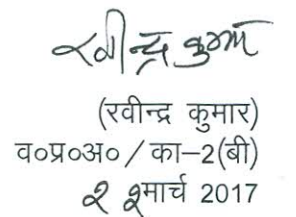 रवीन्द्र कुमार
(रवीन्द्र कुमार)
व०प्र०अ० / का–2(बी)
2 2मार्च 2017